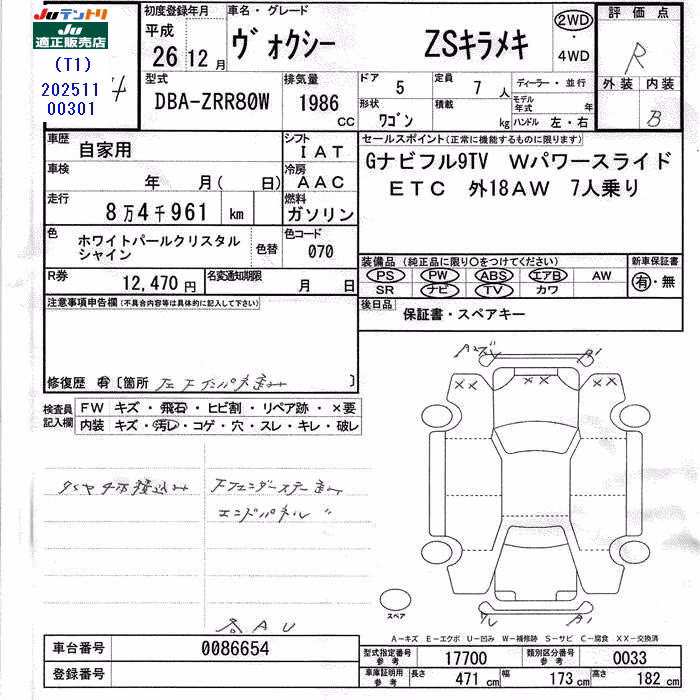 Juテントリ
JU
適正販売店
(T1)
202511
00301
初度登録年月
平成
26 12 月
車名・グレード
ヴォクシー ZSキラメキ
2WD
・
4WD
評価点
R
外装 内装
B
型式
DBA-ZRR80W
排気量
1986 CC
ドア 5
定員 7 人
ディーラー・並行
形状
ワゴン
積載 kg
モデル
年式 年
ハンドル 左・右
車歴
自家用
シフト
IAT
セールスポイント(正常に機能するものに限ります)
Gナビフル9TV Wパワースライド
ETC 外18AW 7人乗り
車検 年 月( 日)
冷房
AAC
走行
8万4千961 km
燃料
ガソリン
色
ホワイトパールクリスタル
シャイン
色替
色コード
070
装備品 (純正品に限り○をつけてください)
PS PW ABS エアB AW
SR ナビ TV カワ
新車保証書
有・無
R券 12,470 円
名変通知期限 月 日
後日品
保証書・スペアキー
注意事項申告欄 (不具合内容等は具体的に記入して下さい)
修復歴 有 〔箇所 〕
検査員
記入欄
FW キズ・飛石・ヒビ割・リペア跡・×要
内装 キズ・汚レ・コゲ・穴・スレ・キレ・破レ
エンドパネル 〃
A1
XX XX
スペア
A1
A-キズ E-エクボ U-凹み W-補修跡 S-サビ C-腐食 XX-交換済
車台番号 0086654
登録番号
型式指定番号
参考
17700
類別区分番号
参考
0033
車庫証明用
参考
長さ 471 cm 幅 173 cm 高さ 182 cm